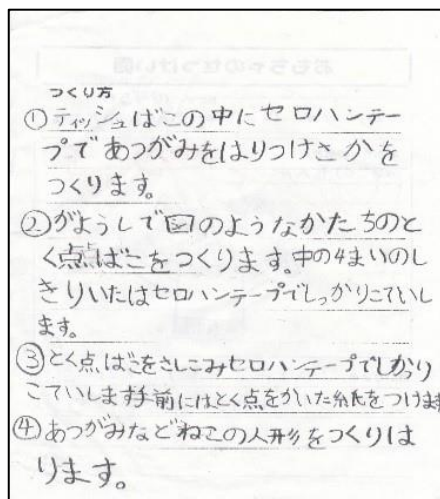 つくり方
①ティッシュばこの中にセロハンテー
プであつがみをはりつけさかを
つくります。
②がようしで図のようなかたちのと
く点ばこをつくります。中の4まいのし
きりいたはセロハンテープでしっかりこていし
ます。
③とく点ばこをさしこみセロハンテープでしかり
こていします手前にはとく点をかいた紙をつけます
④あつがみなどねこの人形をつくりは
ります。